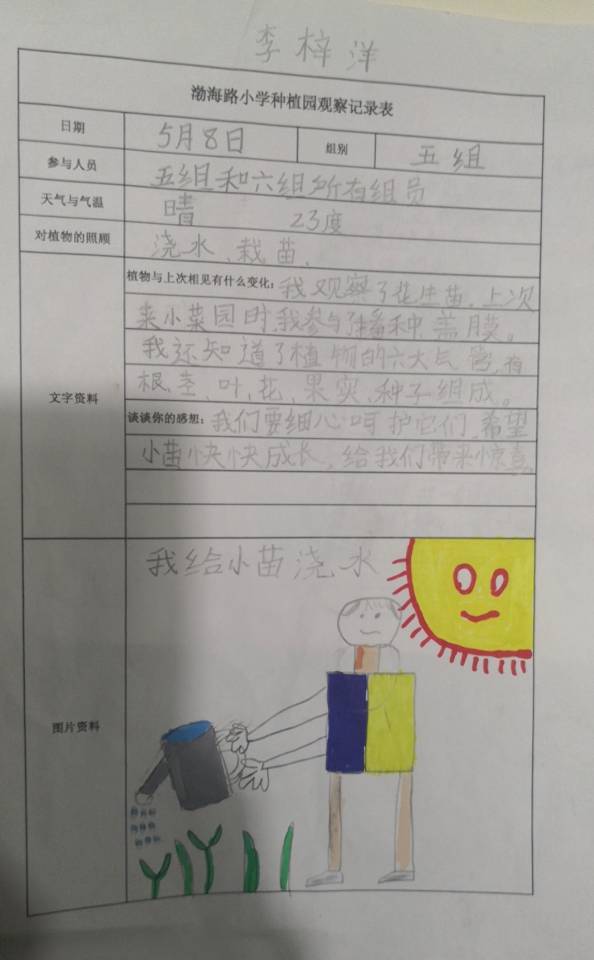 李梓洋
渤海路小学种植园观察记录表
日期 5月8日 组别 五组
参与人员 五组和六组所有组员
天气与气温 晴 23度
对植物的照顾 浇水、栽苗.
文字资料
植物与上次相见有什么变化：我观察了花生苗,上次
来小菜园时,我参与了播种、盖膜。
我还知道了植物的六大气官,有
根、茎、叶、花、果实、种子组成。
谈谈你的感想：我们要细心呵护它们,希望
小苗快快成长,给我们带来惊喜
图片资料
我给小苗浇水